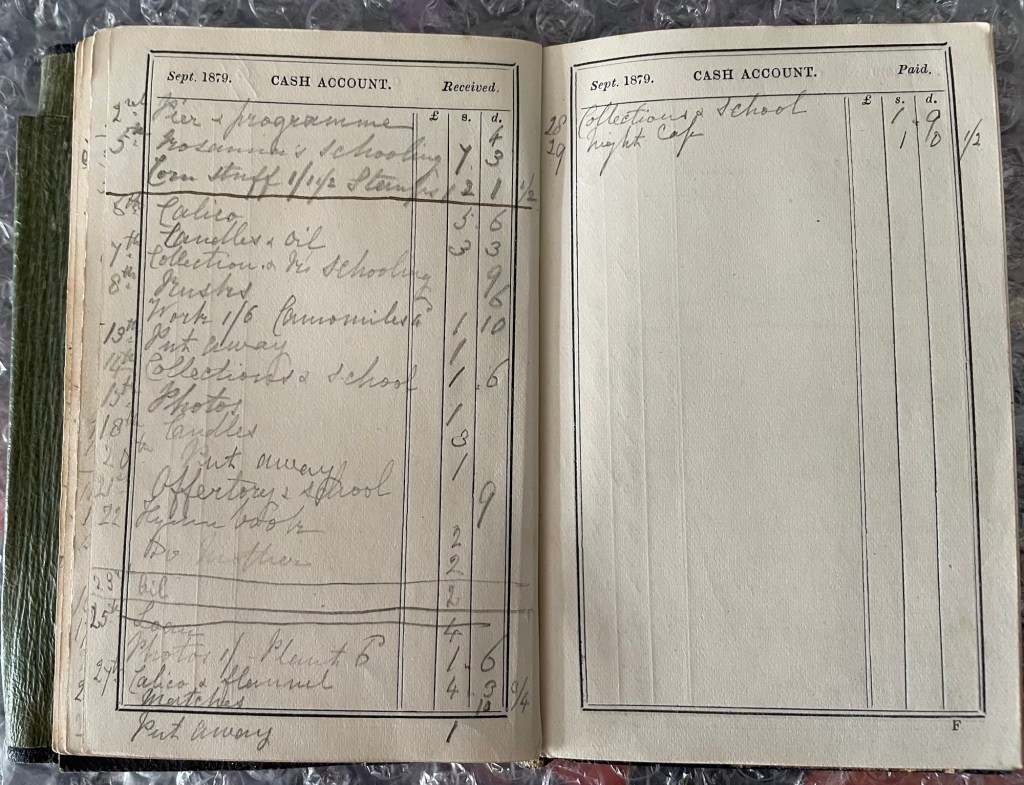 Sept. 1879. CASH ACCOUNT. Received.
£ s. d.
2nd Pier & programme 4
5th Rosanna's schooling 7 3
Corn stuff 1/1 1/2 Stamps 1 2 1 1/2
6th Calico 5 6
Candles & oil 3 3
7th Collection & R's schooling 9
8th Rusks 6
Work 1/6 Camomiles 6 1 10
13th Put away 1
14th Collections & school 1 6
15th Photos 1
18th Candles 3
20th Put away 1
21st Offertory & school 9
22 Hymn book 2
Do Mother 2
23rd Oil 2
25th Loan 4
Photos 1/ Plant 6 1 6
27th Calico & flannel 4 3 3/4
Matches 10
Put away 1
Sept. 1879. CASH ACCOUNT. Paid.
£ s. d.
28 Collections & school 1 9
29 Night Cap 1 0 1/2
F